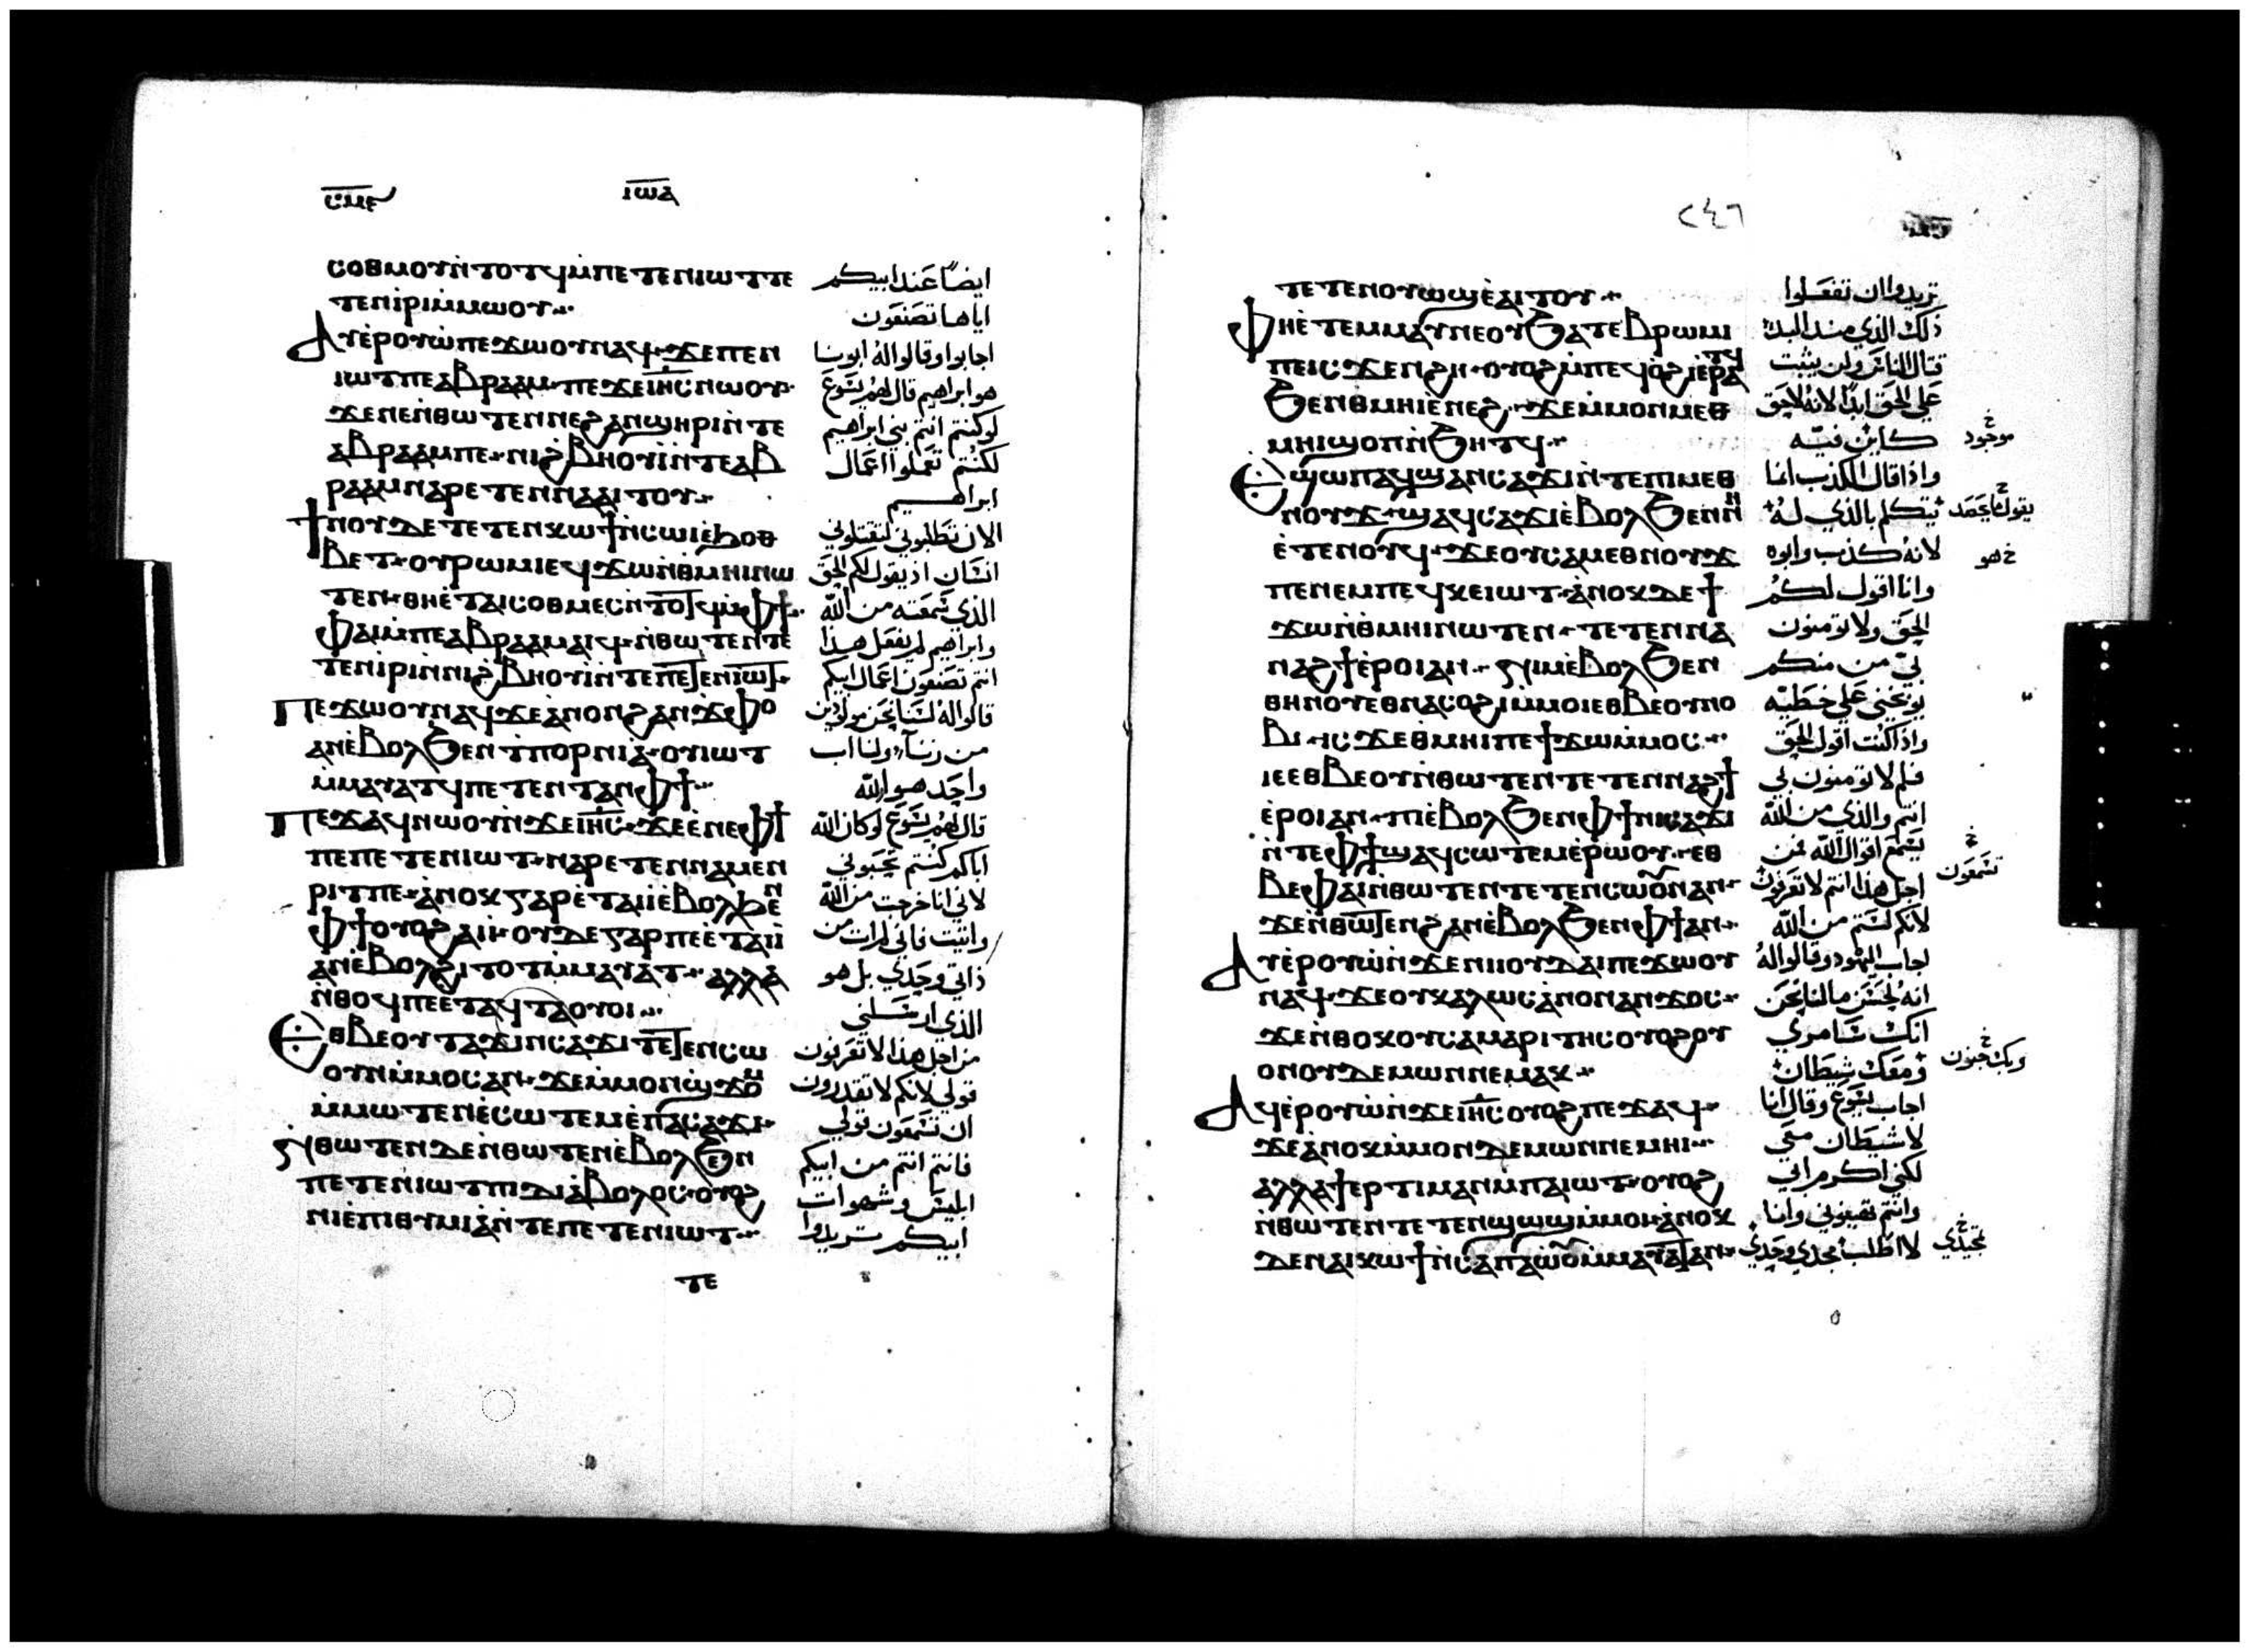 ⲥⲙⲉ ⲓⲱⲁ
ⲥⲟⲑⲙⲟⲩⲛ̀ⲧⲟⲧϥⲙ̀ⲡⲉⲧⲉⲛⲓⲱⲧⲧⲉ ايضاً عند ابيكم
ⲧⲉⲛⲓ̀ⲣⲓⲙ̀ⲙⲱⲟⲩ اياها تصنعون
Ⲁⲩⲉ̀ⲣⲟⲩⲱ̀ⲡⲉϫⲱⲟⲩⲛⲁϥ ϫⲉⲡⲉⲛ اجابوا وقالوا له ابونا
ⲓⲱⲧⲡⲉⲁⲃⲣⲁⲁⲙ ⲡⲉϫⲉⲓⲏⲥⲛⲱⲟⲩ هو ابراهيم قال لهم يسوع
ϫⲉⲛⲉⲛ̀ⲑⲱⲧⲉⲛⲛⲉϩⲁⲛϣⲏⲣⲓⲛ̀ⲧⲉ لو كنتم انتم بني ابراهيم
ⲁⲃⲣⲁⲁⲙⲡⲉ ⲛⲓϩⲃⲏⲟⲩⲓ̀ⲛ̀ⲧⲉⲁⲃ لكنتم تعملوا اعمال
ⲣⲁⲁⲙⲛⲁⲣⲉⲧⲉⲛⲛⲁⲁⲓⲧⲟⲩ ابراهيم
Ϯⲛⲟⲩⲇⲉⲧⲉⲧⲉⲛⲕⲱϯⲛ̀ⲥⲱⲓⲉ̀ϧⲟⲑ الان تطلبوني لتقتلوني
ⲃⲉⲧ ⲟⲩⲣⲱⲙⲓⲉϥϫⲱⲛ̀ⲑⲙⲏⲓⲛⲱ انسان اذ يقول لكم الحق
ⲧⲉⲛ ⲑⲏⲉ̀ⲧⲁⲓⲥⲟⲑⲙⲉⲥⲛ̀ⲧⲟⲧϥⲙ̀ⲫϯ الذي سمعته من الله
ⲫⲁⲓⲙ̀ⲡⲉⲁⲃⲣⲁⲁⲙⲁⲓϥ ⲛ̀ⲑⲱⲧⲉⲛⲧⲉ وابراهيم لم يفعل هذا
ⲧⲉⲛⲓ̀ⲣⲓⲛ̀ⲛⲓϩⲃⲏⲟⲩⲓ̀ⲛ̀ⲧⲉⲡⲉⲧⲉⲛⲓⲱⲧ انتم تصنعون اعمال ابيكم
Ⲡⲉϫⲱⲟⲩⲛⲁϥϫⲉⲁ̀ⲛⲟⲛϩⲁⲛϫⲫⲟ قالوا له لسنا نحن مولودين
ⲁⲛⲉ̀ⲃⲟⲗϧⲉⲛϯⲡⲟⲣⲛⲓⲁ̀ ⲟⲩⲓⲱⲧ من زنآ ولنا اب
ⲙ̀ⲙⲁⲩⲁⲧϥⲡⲉⲧⲉⲛⲧⲁⲛⲫϯ واحد هو الله
Ⲡⲉϫⲁϥⲛⲱⲟⲩⲛ̀ϫⲉⲓⲏⲥ ϫⲉⲉ̀ⲛⲉⲫϯ قال لهم يسوع لو كان الله
ⲡⲉⲡⲉⲧⲉⲛⲓⲱⲧ ⲛⲁⲣⲉⲧⲉⲛⲛⲁⲙⲉⲛ اباكم كنتم تحبوني
ⲣⲓⲧⲡⲉ ⲁ̀ⲛⲟⲕⲅⲁⲣⲉ̀ⲧⲁⲓⲓ̀ⲉ̀ⲃⲟⲗϧⲉⲛ لاني انا خرجت من الله
ⲫϯⲟⲩⲟϩⲁⲓⲓ̀ ⲟⲩⲇⲉⲅⲁⲣⲡⲉⲉ̀ⲧⲁⲓⲓ̀ واتيت فاني لم ات من
ⲁⲛⲉ̀ⲃⲟⲗϩⲓⲧⲟⲧⲙ̀ⲙⲁⲩⲁⲧ ⲁⲗⲗⲁ ذاتي وحدي بل هو
ⲛ̀ⲑⲟϥⲡⲉⲉ̀ⲧⲁϥⲧⲁⲟⲩⲟⲓ الذي ارسلني
Ⲉⲑⲃⲉⲟⲩⲧⲁϫⲓⲛⲥⲁϫⲓⲧⲉⲧⲉⲛⲥⲱ من اجل هذا لا تعرفون
ⲟⲩⲛⲙ̀ⲙⲟⲥⲁⲛ ϫⲉⲙ̀ⲙⲟⲛϣϫⲟⲙ قولي لانكم لا تقدرون
ⲙ̀ⲙⲱⲧⲉⲛⲉ̀ⲥⲱⲧⲉⲙⲉ̀ⲡⲁⲥⲁϫⲓ ان تسمعون قولي
ⲛ̀ⲑⲱⲧⲉⲛⲇⲉⲛ̀ⲑⲱⲧⲉⲛⲉ̀ⲃⲟⲗϧⲉⲛ فانتم انتم من ابيكم
ⲡⲉⲧⲉⲛⲓⲱⲧⲡⲓⲇⲓⲁ̀ⲃⲟⲗⲟⲥ ⲟⲩⲟϩ ابليس وشهوات
ⲛⲓⲉ̀ⲡⲓⲑⲩⲙⲓⲁ̀ⲛ̀ⲧⲉⲡⲉⲧⲉⲛⲓⲱⲧ ابيكم تريدوا
ⲧⲉ
٢٤٦
ⲧⲉⲧⲉⲛⲟⲩⲱϣⲉ̀ⲁⲓⲧⲟⲩ تريدوا ان تفعلوا
Ⲫⲏⲉ̀ⲧⲉⲙⲙⲁⲩⲛⲉⲟⲩϧⲁⲧⲉⲃⲣⲱⲙⲓ ذلك الذي منذ البدء
ⲡⲉⲓⲥϫⲉⲛϩⲏ ⲟⲩⲟϩⲙ̀ⲡⲉϥⲟ̀ϩⲓⲉ̀ⲣⲁⲧϥ قتال الناس ولن يثبت
ϧⲉⲛⲑⲙⲏⲓⲉ̀ⲛⲉϩ ϫⲉⲙ̀ⲙⲟⲛⲙⲉⲑ على الحق ابداً لانه لا حق
ⲙⲏⲓϣⲟⲡⲛ̀ϧⲏⲧϥ كاين فيه موجود
Ⲉϣⲱⲡⲁϥϣⲁⲛⲥⲁϫⲓⲛ̀ⲧⲉⲡⲓⲙⲉⲑ واذا قال الكذب انما
ⲛⲟⲩϫ ϣⲁϥⲥⲁϫⲓⲉ̀ⲃⲟⲗϧⲉⲛⲛⲏ يتكلم بالذي له
ⲉ̀ⲧⲉⲛⲟⲩϥ ϫⲉⲟⲩⲥⲁⲙⲉⲑⲛⲟⲩϫ لانه كذب وابوه خ هو
ⲡⲉⲛⲉⲙⲡⲉϥⲕⲉⲓⲱⲧ ⲁ̀ⲛⲟⲕⲇⲉϯ وانا اقول لكم
ϫⲱⲛ̀ⲑⲙⲏⲓⲛⲱⲧⲉⲛ ⲧⲉⲧⲉⲛⲛⲁ الحق ولا تومنون
ⲛⲁϩϯⲉ̀ⲣⲟⲓⲁⲛ ⲛⲓⲙⲉ̀ⲃⲟⲗϧⲉⲛ بي من منكم
ⲑⲏⲛⲟⲩⲉⲑⲛⲁⲥⲟϩⲓⲙ̀ⲙⲟⲓⲉⲑⲃⲉⲟⲩⲛⲟ يوبخني على خطيه
ⲃⲓ ⲓⲥϫⲉⲑⲙⲏⲓⲡⲉϯϫⲱⲙ̀ⲙⲟⲥ واذا كنت اقول الحق
ⲓⲉⲉⲑⲃⲉⲟⲩⲛ̀ⲑⲱⲧⲉⲛⲧⲉⲧⲉⲛⲛⲁϩϯ فلم لا تومنون بي
ⲉ̀ⲣⲟⲓⲁⲛ ⲡⲓⲉ̀ⲃⲟⲗϧⲉⲛⲫϯⲛⲓⲥⲁϫⲓ انتم والذي من الله
ⲛ̀ⲧⲉⲫϯϣⲁϥⲥⲱⲧⲉⲙⲉ̀ⲣⲱⲟⲩ ⲉⲑ يسمع اقوال الله من
ⲃⲉⲫⲁⲓⲛ̀ⲑⲱⲧⲉⲛⲧⲉⲧⲉⲛⲥⲱⲟⲩⲛⲁⲛ اجل هذا انتم لا تعرفون تسمعون
ϫⲉⲛ̀ⲑⲱⲧⲉⲛϩⲁⲛⲉ̀ⲃⲟⲗϧⲉⲛⲫϯⲁⲛ لانكم لستم من الله
Ⲁⲩⲉ̀ⲣⲟⲩⲱ̀ⲛ̀ϫⲉⲛⲓⲓⲟⲩⲇⲁⲓⲡⲉϫⲱⲟⲩ اجاب اليهود وقالوا له
ⲛⲁϥ ϫⲉⲟⲩⲕⲁⲗⲱⲥⲁ̀ⲛⲟⲛⲁⲛϫⲟⲥ انه لحسن ما قلنا نحن
ϫⲉⲛ̀ⲑⲟⲕⲟⲩⲥⲁⲙⲁⲣⲓⲧⲏⲥⲟⲩⲟϩⲟⲩ انك سامري
ⲟⲛⲟⲩⲇⲉⲙⲱⲛⲛⲉⲙⲁⲕ ومعك شيطان وبك جنون
Ⲁϥⲉ̀ⲣⲟⲩⲱ̀ⲛ̀ϫⲉⲓⲏⲥⲟⲩⲟϩⲡⲉϫⲁϥ اجاب يسوع وقال انا
ϫⲉⲁ̀ⲛⲟⲕⲙ̀ⲙⲟⲛⲇⲉⲙⲱⲛⲛⲉⲙⲏⲓ لا شيطان معي
ⲁⲗⲗⲁϯⲉⲣⲧⲓⲙⲁⲛⲙ̀ⲡⲁⲓⲱⲧ ⲟⲩⲟϩ لكني اكرم ابي
ⲛ̀ⲑⲱⲧⲉⲛⲧⲉⲧⲉⲛϣⲱϣⲙ̀ⲙⲟⲓ ⲁ̀ⲛⲟⲕ وانتم تهينوني وانا
ⲇⲉⲛⲁⲓⲕⲱϯⲛ̀ⲥⲁⲡⲁⲱ̀ⲟⲩⲙ̀ⲙⲁⲩⲁⲧⲁⲛ لا اطلب مجدي وحدي تمجيدي